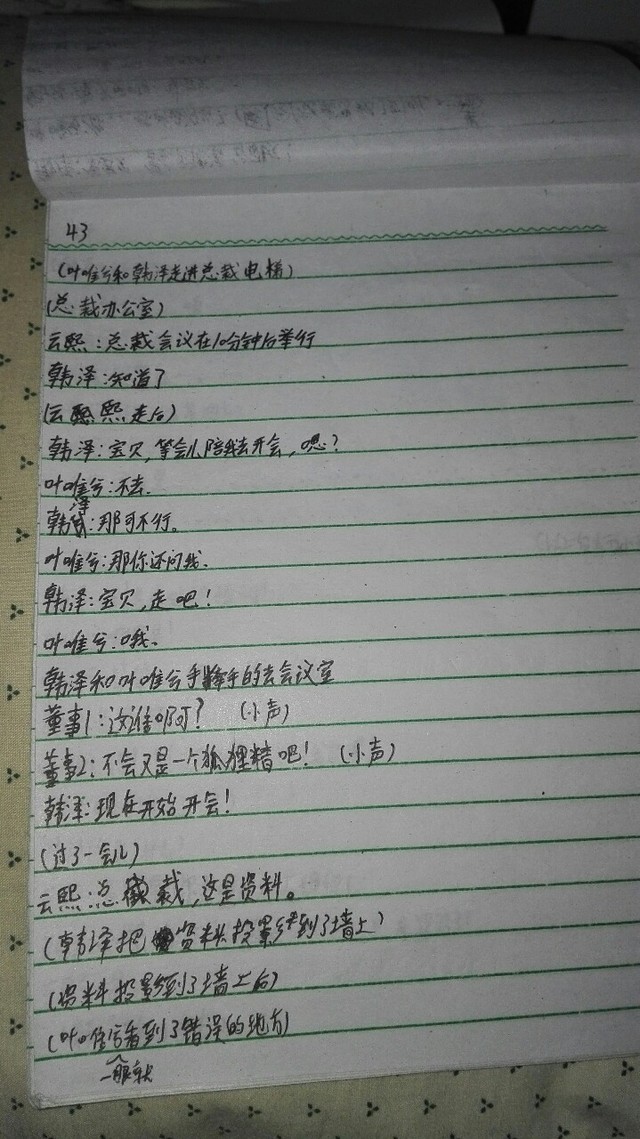 43
(叶唯兮和韩泽走进总裁电梯)
(总裁办公室)
云熙:总裁会议在10分钟后举行
韩泽:知道了
(云熙走后)
韩泽:宝贝,等会儿陪我去开会,嗯?
叶唯兮:不去.
韩泽:那可不行。
叶唯兮:那你还问我.
韩泽:宝贝,走吧!
叶唯兮:哦.
韩泽和叶唯兮手牵手的去会议室
董事1:这谁啊? (小声)
董事2:不会又是一个狐狸精吧! (小声)
韩泽:现在开始开会!
(过了一会儿)
云熙:总裁,这是资料。
(韩泽把资料投影到了墙上)
(资料投影到了墙上后)
(叶唯兮一眼就看到了错误的地方)